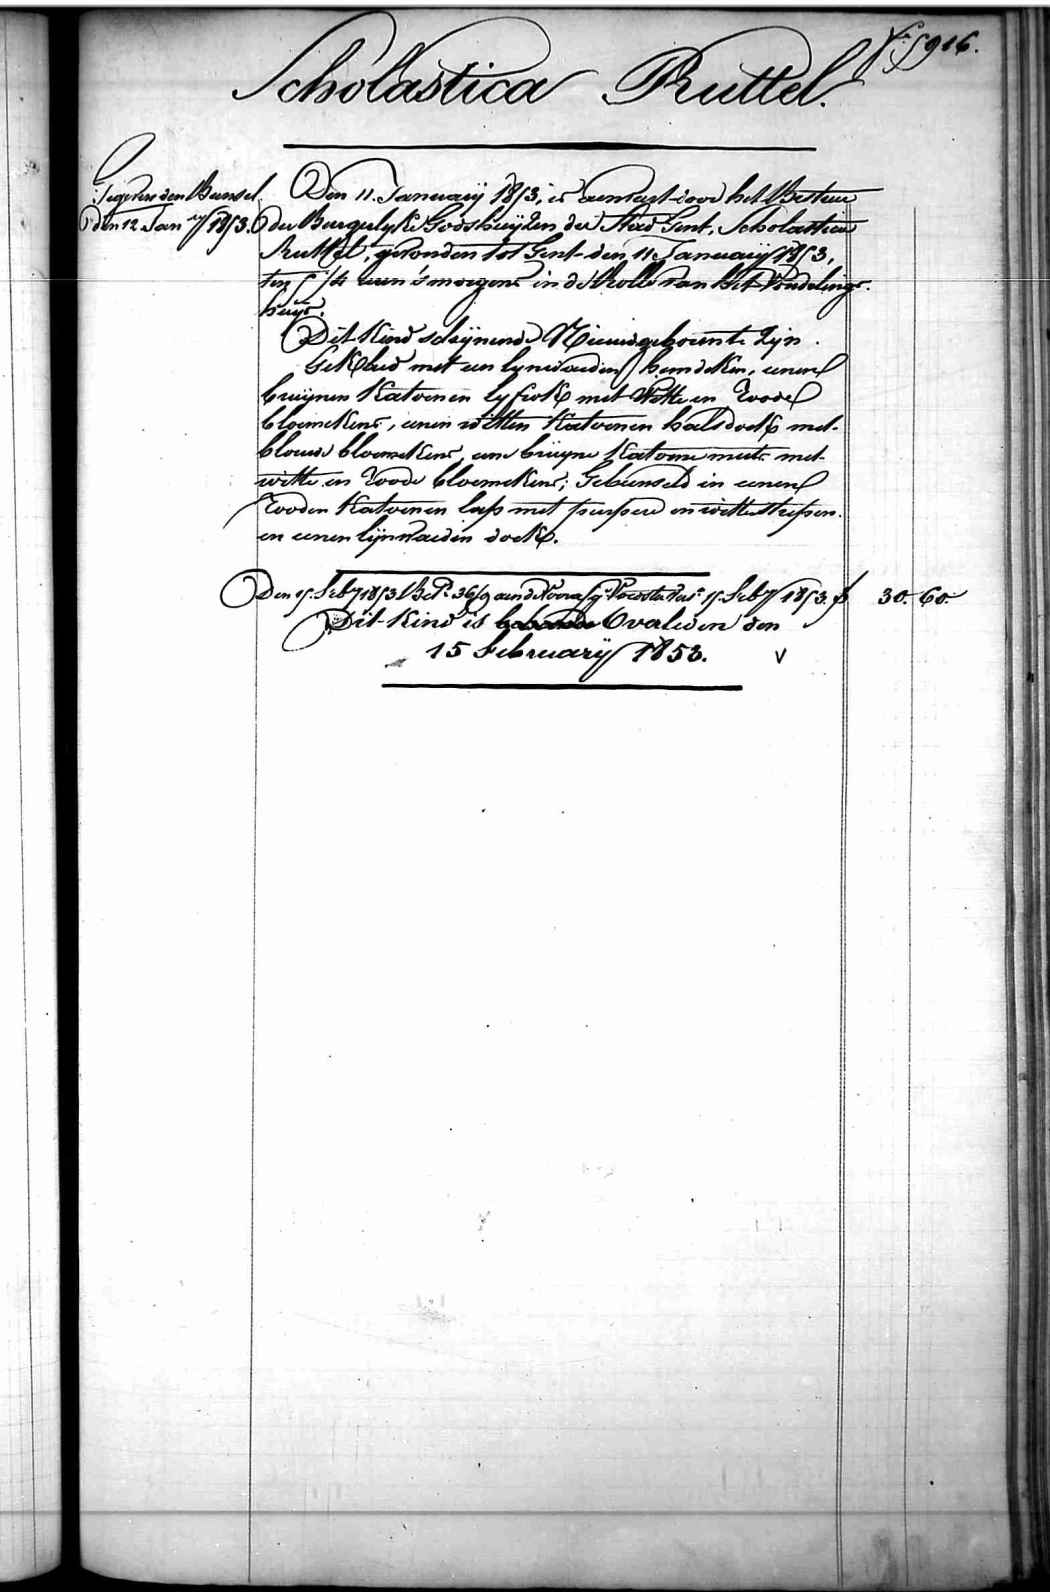 f° 5916.
Scholastica Ruttel.
Gegeven den Bunsel
den 12 Jan ry 1853.
Den 11. Januarij 1853, is aenveert door het Bestuer
der Burgerlyke Godshuijzen der Stad Gent, Scholastica
Ruttel, gevonden tot Gent den 11 Januarij 1853,
ten 5 1/4 uren 's morgens in de Rolle van het Vondelings-
huijs.
Dit Kind schijnende Nieuwgeboren te Zijn.
Gekleed met een lynwaeden hemdeken, eenen
bruijnen Katoenen lyfrok met Witte en Roode
bloemekens, eenen witten Katoenen halsdoek met
blouwe bloemekens, eene bruyne Katoene muts met
witte en Roode bloemekens; Gebunseld in eenen
Rooden Katoenen lap met purpere en witte strepen
en eenen lijnwaeden doek.
Den 15 Feby 1853 Bet. 36/9 aen de 15 Feby 1853. f 30. 60.
Dit Kind is Overleden den
15 February 1853. v